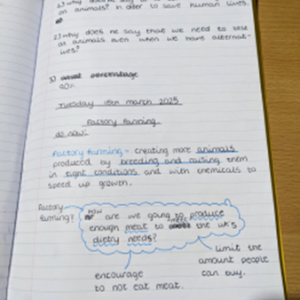 on animals? in order to save human lives.
2) why does he say that we need to test
on animals even when we have alternat-
ives?
3) percentage
90%
Tuesday 18th march 2025
factory farming
do now:
factory farming - creating more animals
produced by breeding and raising them
in tight conditions and with chemicals to
speed up growth.
factory
farming?
how are we going to produce
enough meat to meet the UK's
dietry needs?
limit the
amount people
can buy.
encourage
to not eat meat.